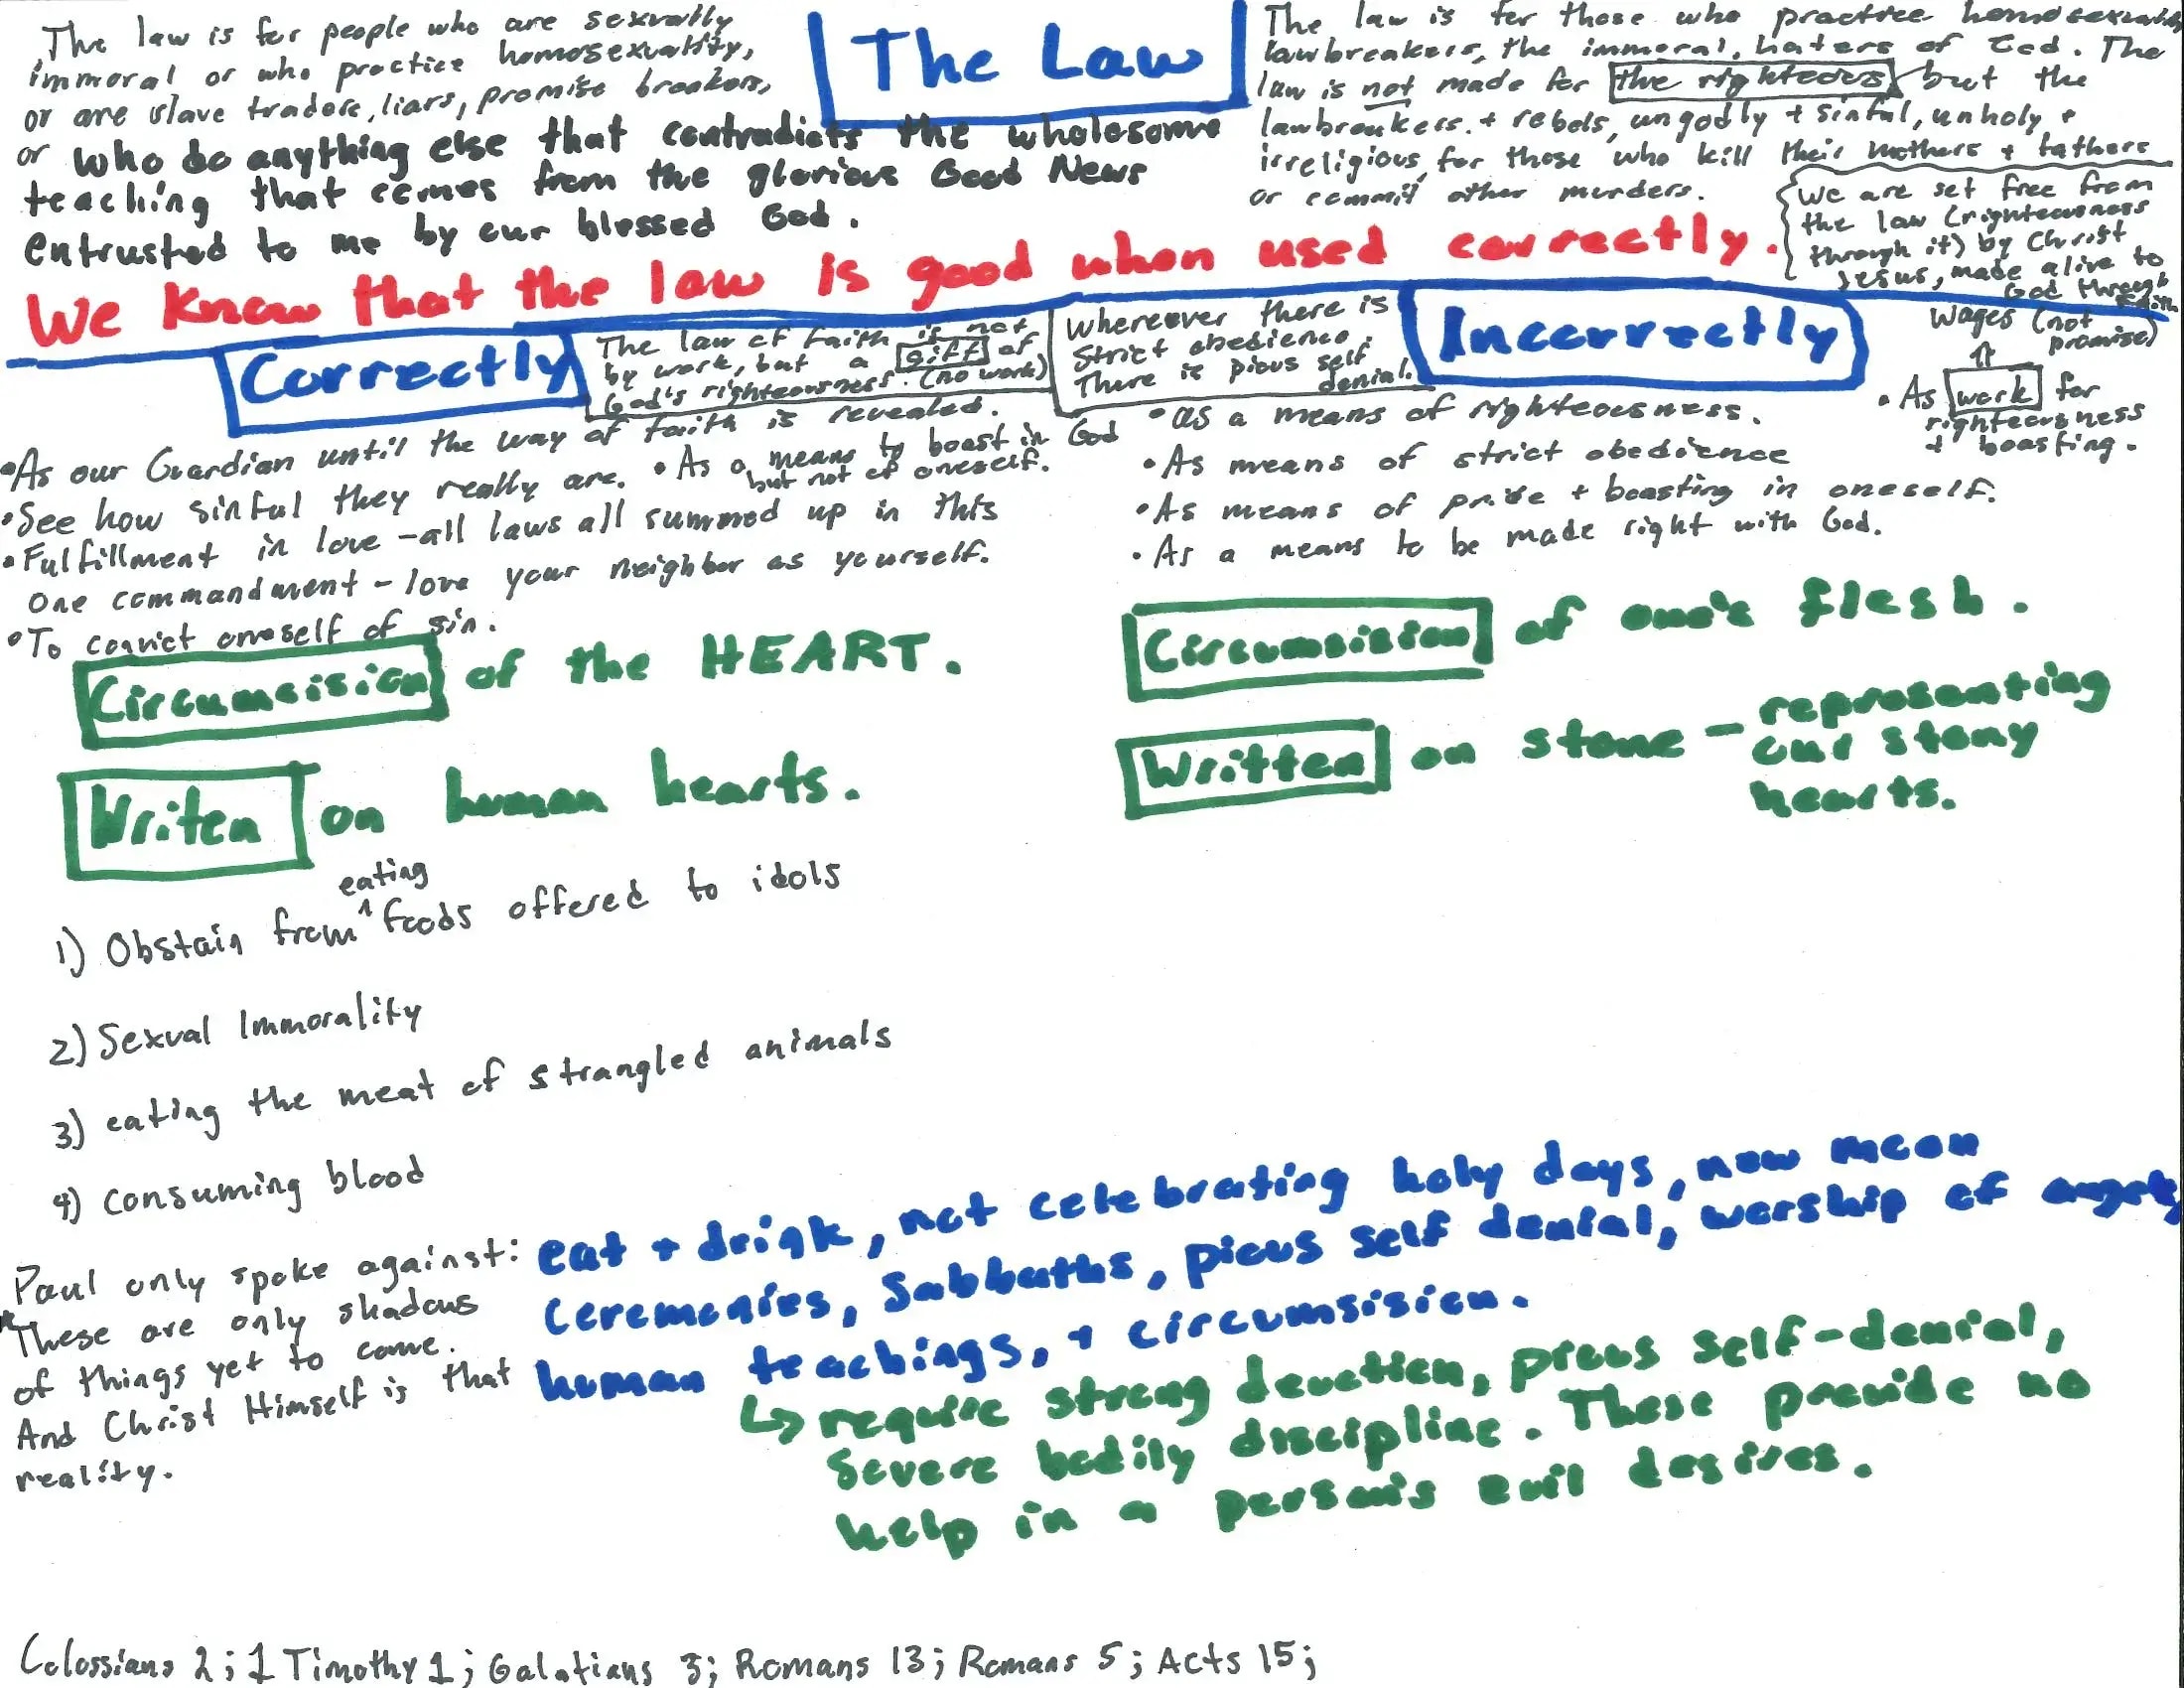 The Law
The law is for people who are sexually
immoral or who practice homosexuality,
or are slave traders, liars, promise breakers,
or who do anything else that contradicts the wholesome
teaching that comes from the glorious Good News
entrusted to me by our blessed God.
The law is for those who practice homosexuality
lawbreakers, the immoral, haters of God. The
law is not made for the righteous but the
lawbreakers. + rebels, ungodly + sinful, unholy +
irreligious, for those who kill their mothers + fathers
or commit other murders.
We are set free from
the law (righteousness
through it) by Christ
Jesus, made alive to
God through
faith
We know that the law is good when used correctly.
Correctly
The law of faith is not
by work, but a gift of
God's righteousness. (no work)
Whereever there is
strict obedience,
There is pious self
denial.
Incorrectly
Wages (not
promise)
⇑
• As work for
righteousness
+ boasting.
•As our Guardian until the way of faith is revealed.
•See how sinful they really are. • As a means to boast in God
but not of oneself.
•Fulfillment in love - all laws all summed up in this
one commandment - love your neighbor as yourself.
•To convict oneself of sin.
• as a means of righteousness.
• As means of strict obedience
• As means of pride + boasting in oneself.
• As a means to be made right with God.
Circumsision of the HEART.
Writen on human hearts.
Circumsision of one's flesh.
Written on stone - representing
our stony
hearts.
eating
1) Obstain from ^ foods offered to idols
2) Sexual Immorality
3) eating the meat of strangled animals
4) consuming blood
Paul only spoke against:
*These are only shadows
of things yet to come.
And Christ Himself is that
reality.
eat + drink, not celebrating holy days, now moon
ceremonies, Sabbaths, pious self denial, worship of angels
human teachings, + circumsision.
↳ require strong devotion, pious self-denial,
severe bodily discipline. These provide no
help in a person's evil desires.
Colossians 2; 1 Timothy 1; Galatians 3; Romans 13; Romans 5; Acts 15;